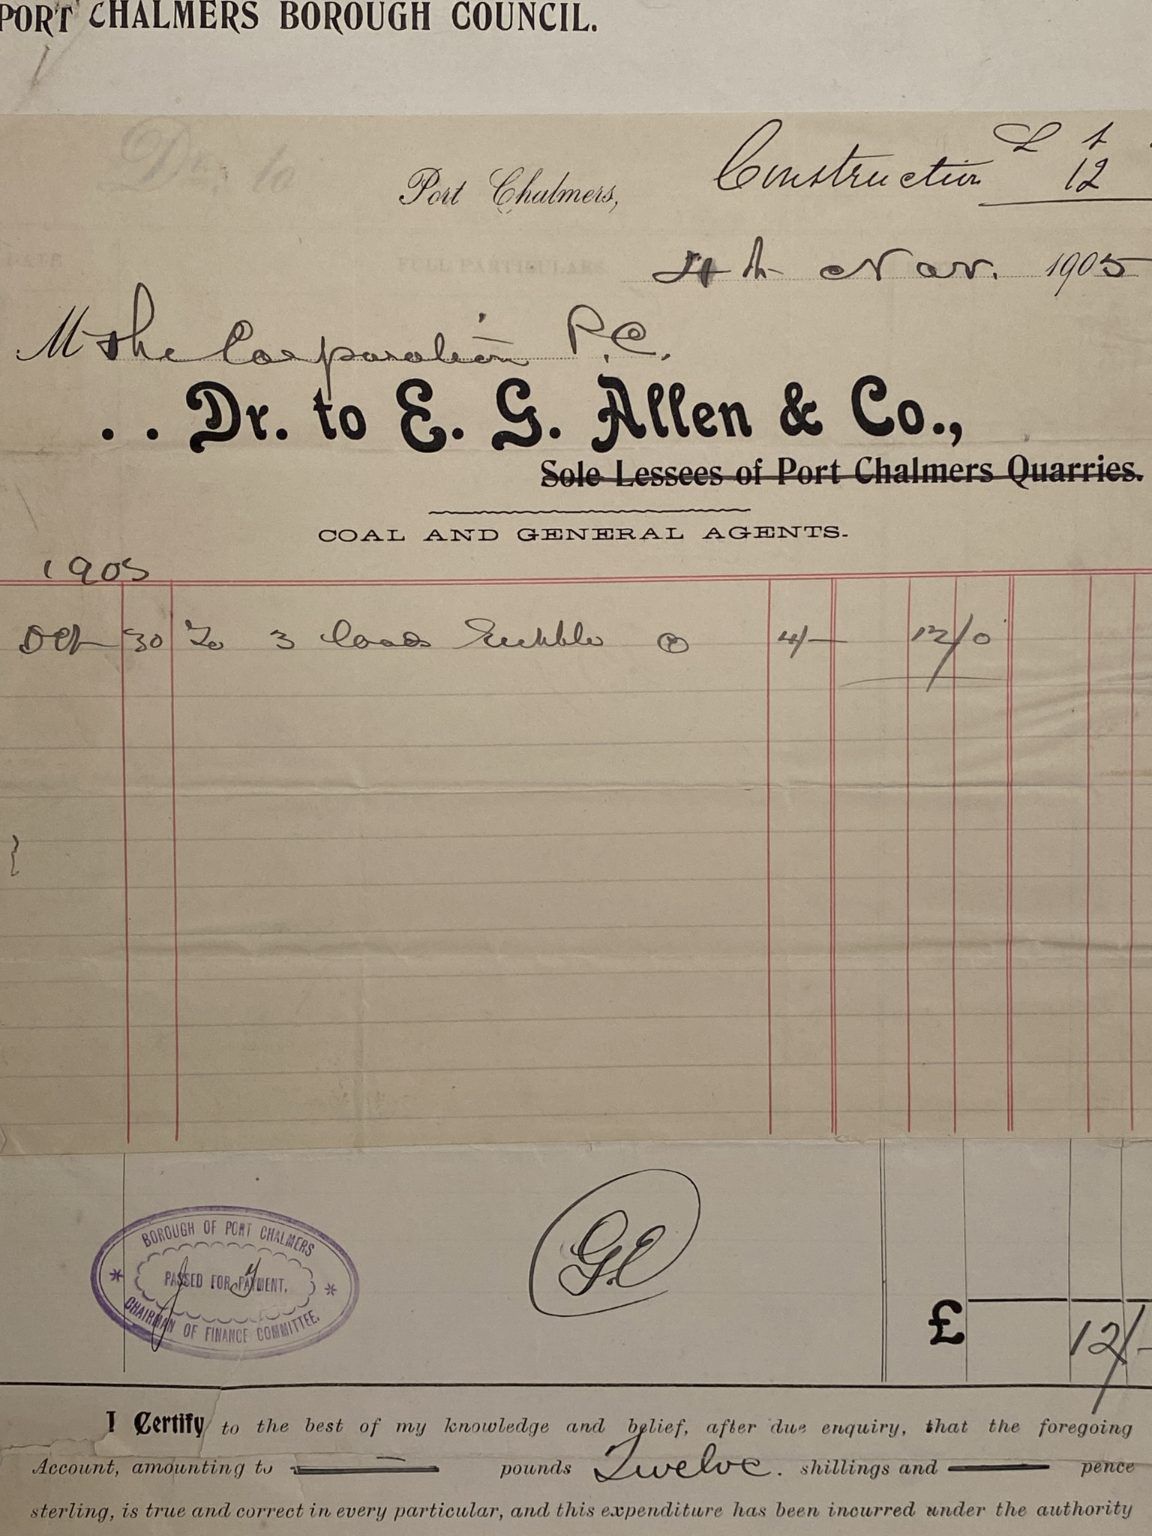 PORT CHALMERS BOROUGH COUNCIL.
£ s
Construction 12
Port Chalmers,
4th Nov. 1905
M the Corporation P.C.
. . Dr. to E. G. Allen & Co.,
Sole Lessees of Port Chalmers Quarries.
COAL AND GENERAL AGENTS.
1905
Oct 30 To 3 loads Rubble @ 4/- 12/0
BOROUGH OF PORT CHALMERS
PASSED FOR PAYMENT.
CHAIRMAN OF FINANCE COMMITTEE.
£ 12/-
I Certify to the best of my knowledge and belief, after due enquiry, that the foregoing
Account, amounting to pounds Twelve. shillings and pence
sterling, is true and correct in every particular, and this expenditure has been incurred under the authority